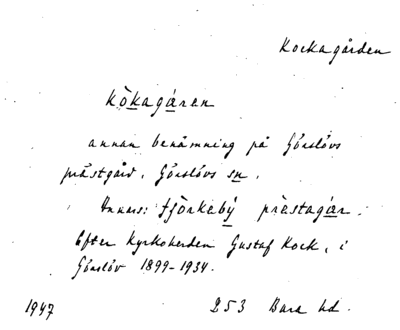 Kockagården
kökagáren
annan benämning på Görslövs
prästgård, Görslövs sn.
Annars: fjörkebý prèstagár.
Efter kyrkoherden Gustaf Kock, i
Görslöv 1899-1934.
1947 253 Bara hd.